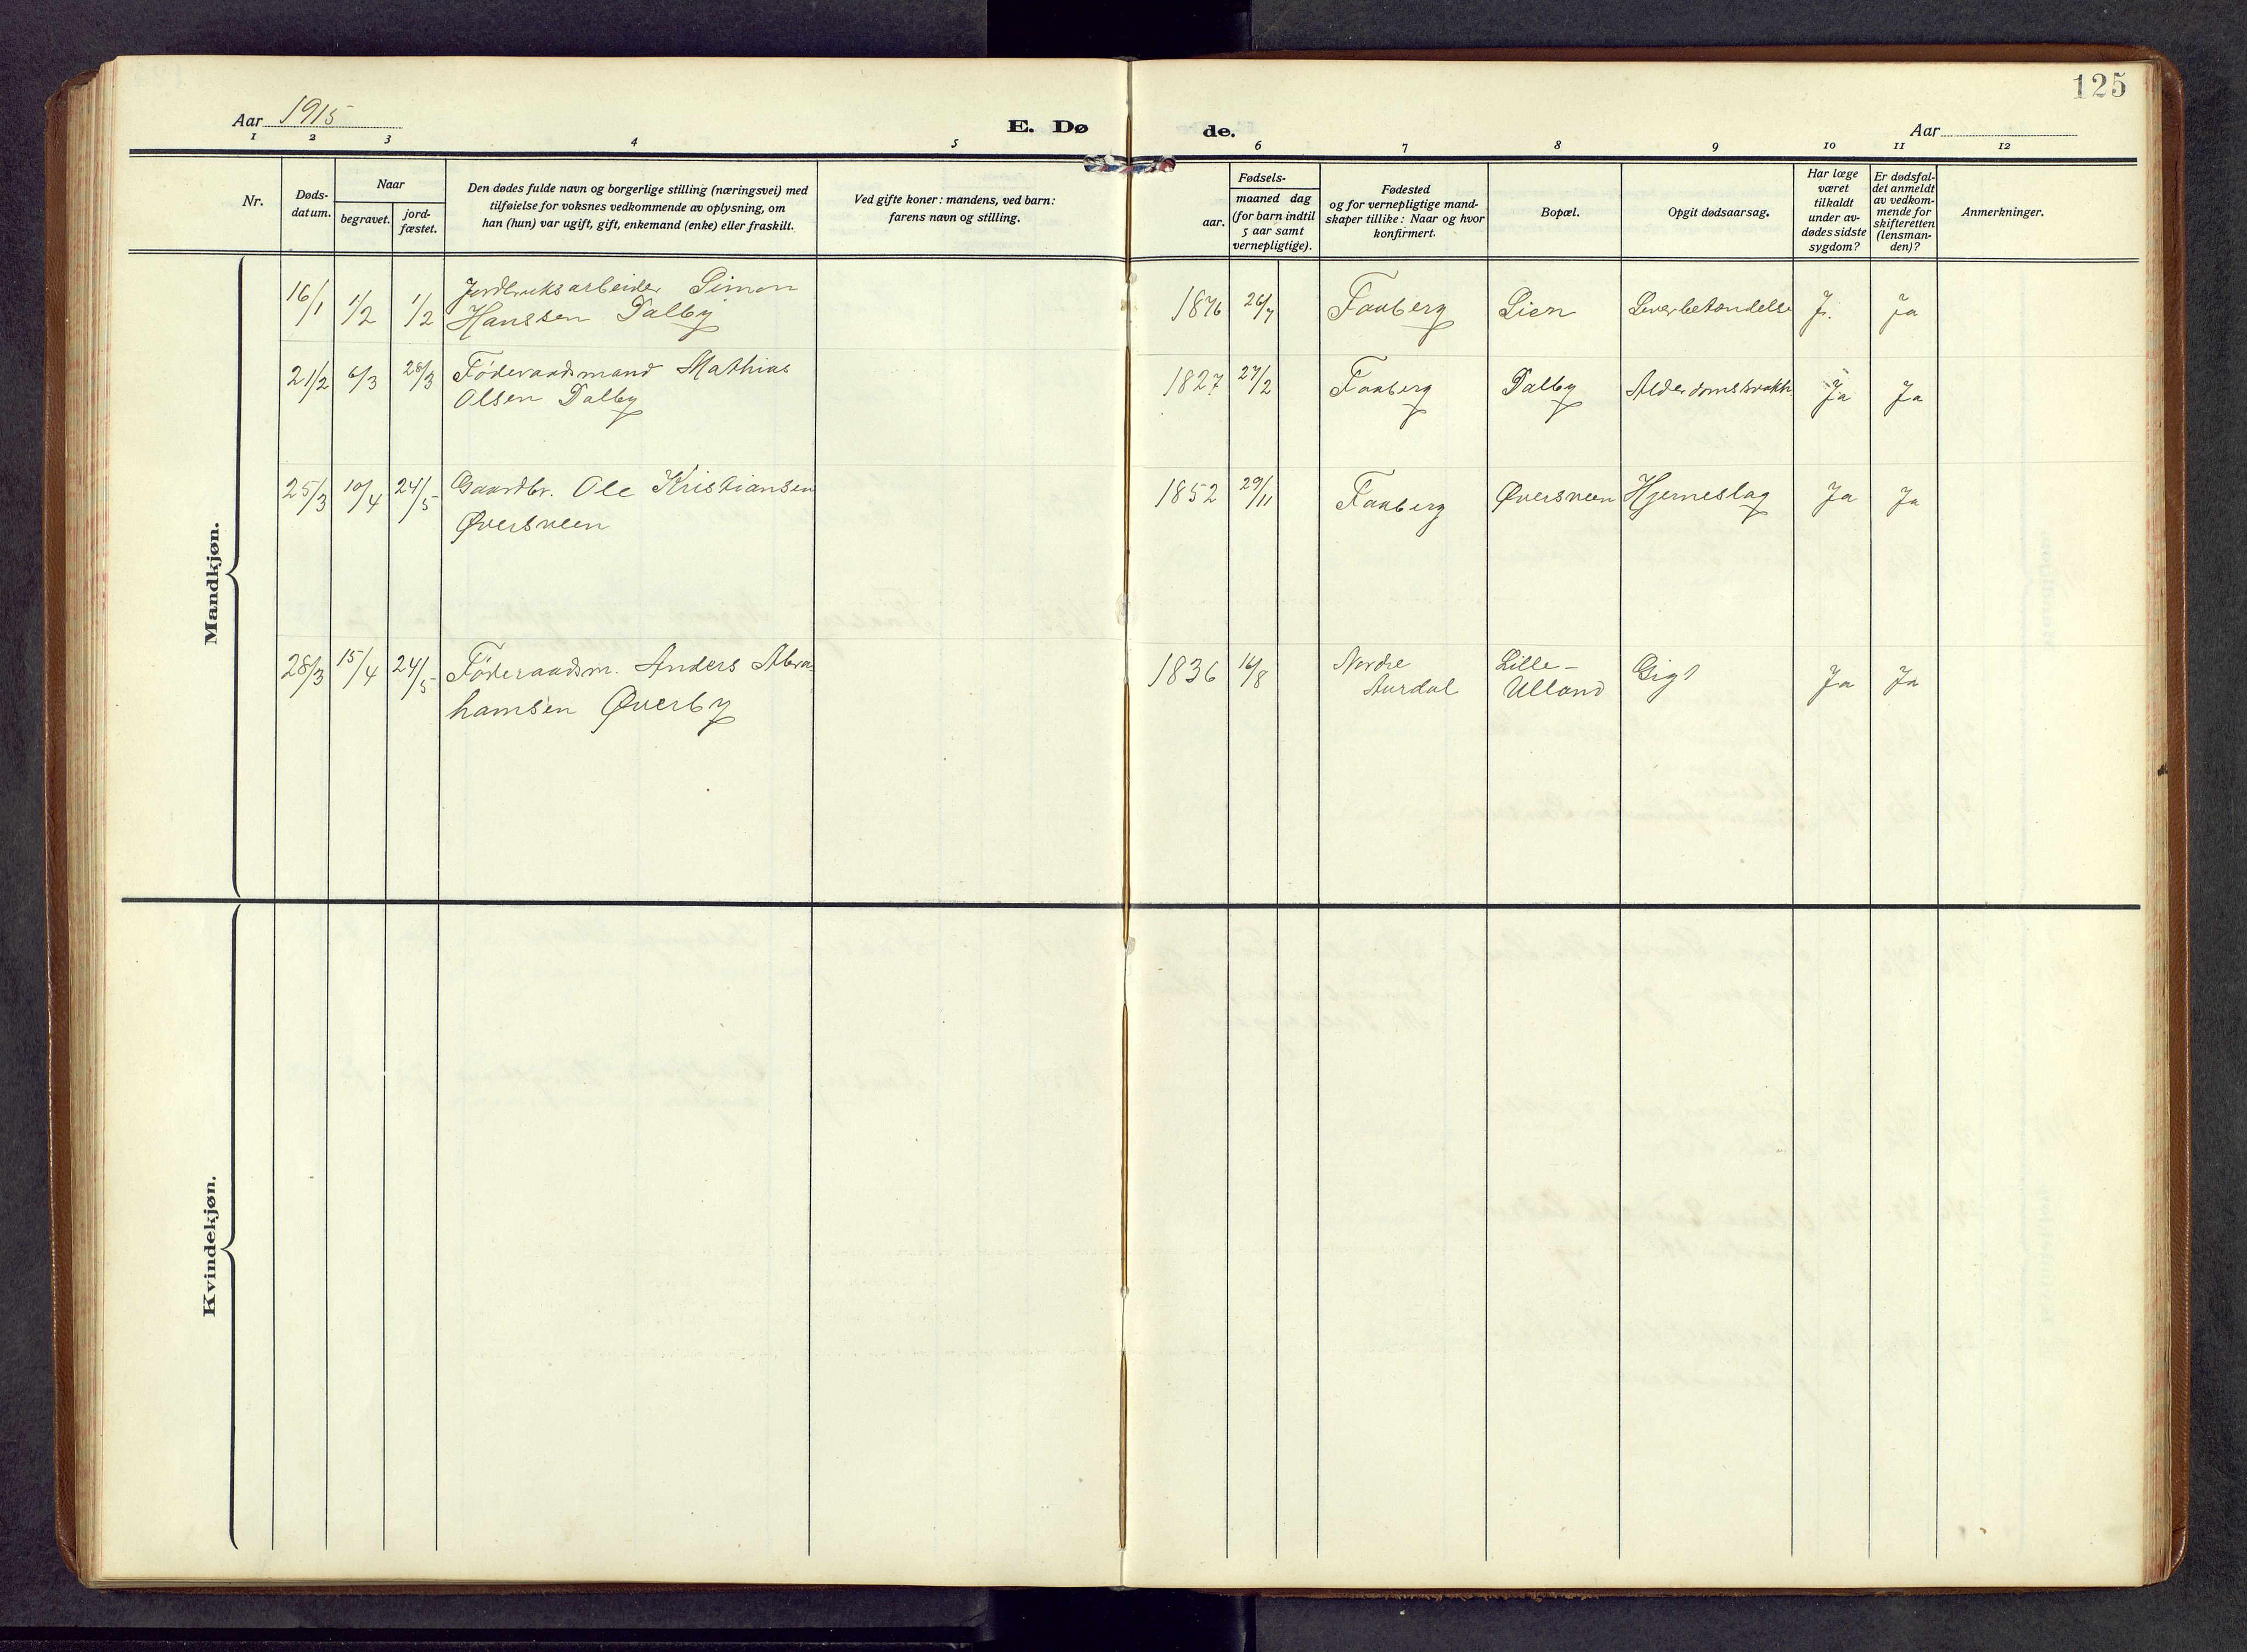 125
Aar 1915
E. Dø
de.
Aar
1 2 3 4 5 6 7 8 9 10 11 12
Nr.
Døds-
datum.
Naar
begravet.
jord-
fæstet.
Den dødes fulde navn og borgerlige stilling (næringsvei) med
tilføielse for voksnes vedkommende av oplysning, om
han (hun) var ugift, gift, enkemand (enke) eller fraskilt.
Ved gifte koner: mandens, ved barn:
farens navn og stilling.
Fødsels-
aar.
maaned dag
(for barn indtil
5 aar samt
vernepligtige).
Fødested
og for vernepligtige mand-
skaper tillike: Naar og hvor
konfirmert.
Bopæl.
Opgit dødsaarsag.
Har læge
været
tilkaldt
under av-
dødes sidste
sygdom?
Er dødsfal-
det anmeldt
av vedkom-
mende for
skifteretten
(lensman-
den)?
Anmerkninger.
Mandkjøn.
16/1 1/2 1/2 Jordbruksarbeider Simon
Hanssen Dalby
1876 26/7 Faaberg Lien Leverbetændelse J. Ja
21/2 6/3 28/3 Föderaadsmand Mathias
Olsen Dalby
1827 27/2 Faaberg Dalby Alderdomssvakh. Ja Ja
25/3 10/4 24/5 Gaardbr. Ole Kristiansen
Øversveen
1852 29/11 Faaberg Øversveen Hjerneslag Ja Ja
28/3 15/4 24/5 Föderaadsm. Anders Abra
hamsen Øverby
1836 16/8 Nordre
Aurdal
Lille-
Ulland
Gigt Ja Ja
Kvindekjøn.